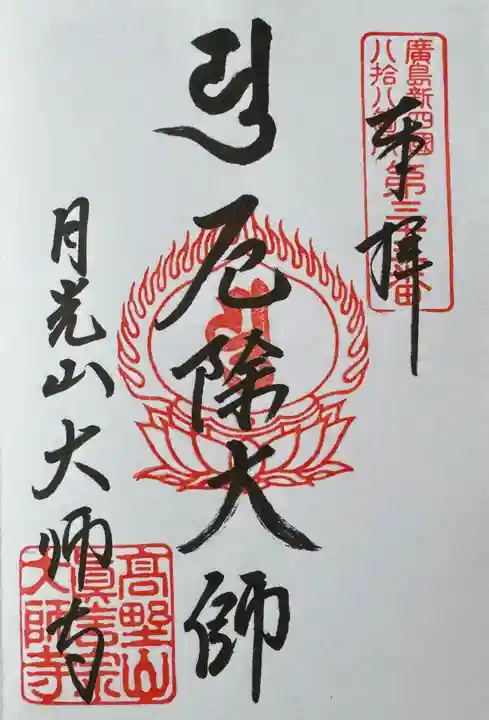 廣島新四國
八拾八箇所
第三
番
奉拝
厄除大師
月光山大師寺
高野山
真言宗
大師寺